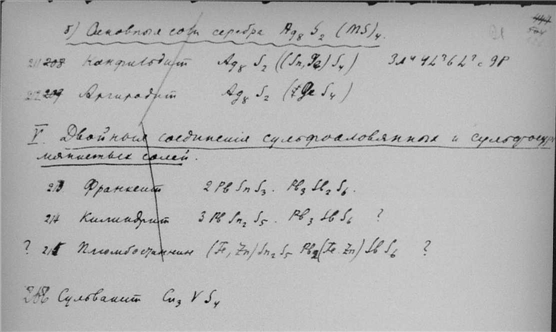 б) Основныя соли серебра Ag8 S2 (MS)4.
208 Канфильдит Ag8 S2 ((Sn,Ge) S4) 3Λ⁴ 4L³ 6L² c 9P
209 Аргиродит Ag8 S2 (Ge S4)
V. Двойныя соединенiя сульфооловянных и сульфосурь
мянистых солей.
213 Франкеит 2PbSnS3. Pb3Sb2S6.
214 Килиндрит 3PbSn2S5. Pb3SbS6 ?
? 215 Плюмбостаннин (Fe,Zn)Sn2S5 Pb2(Fe.Zn)SbS6 ?
Сульванит Cu3VS4